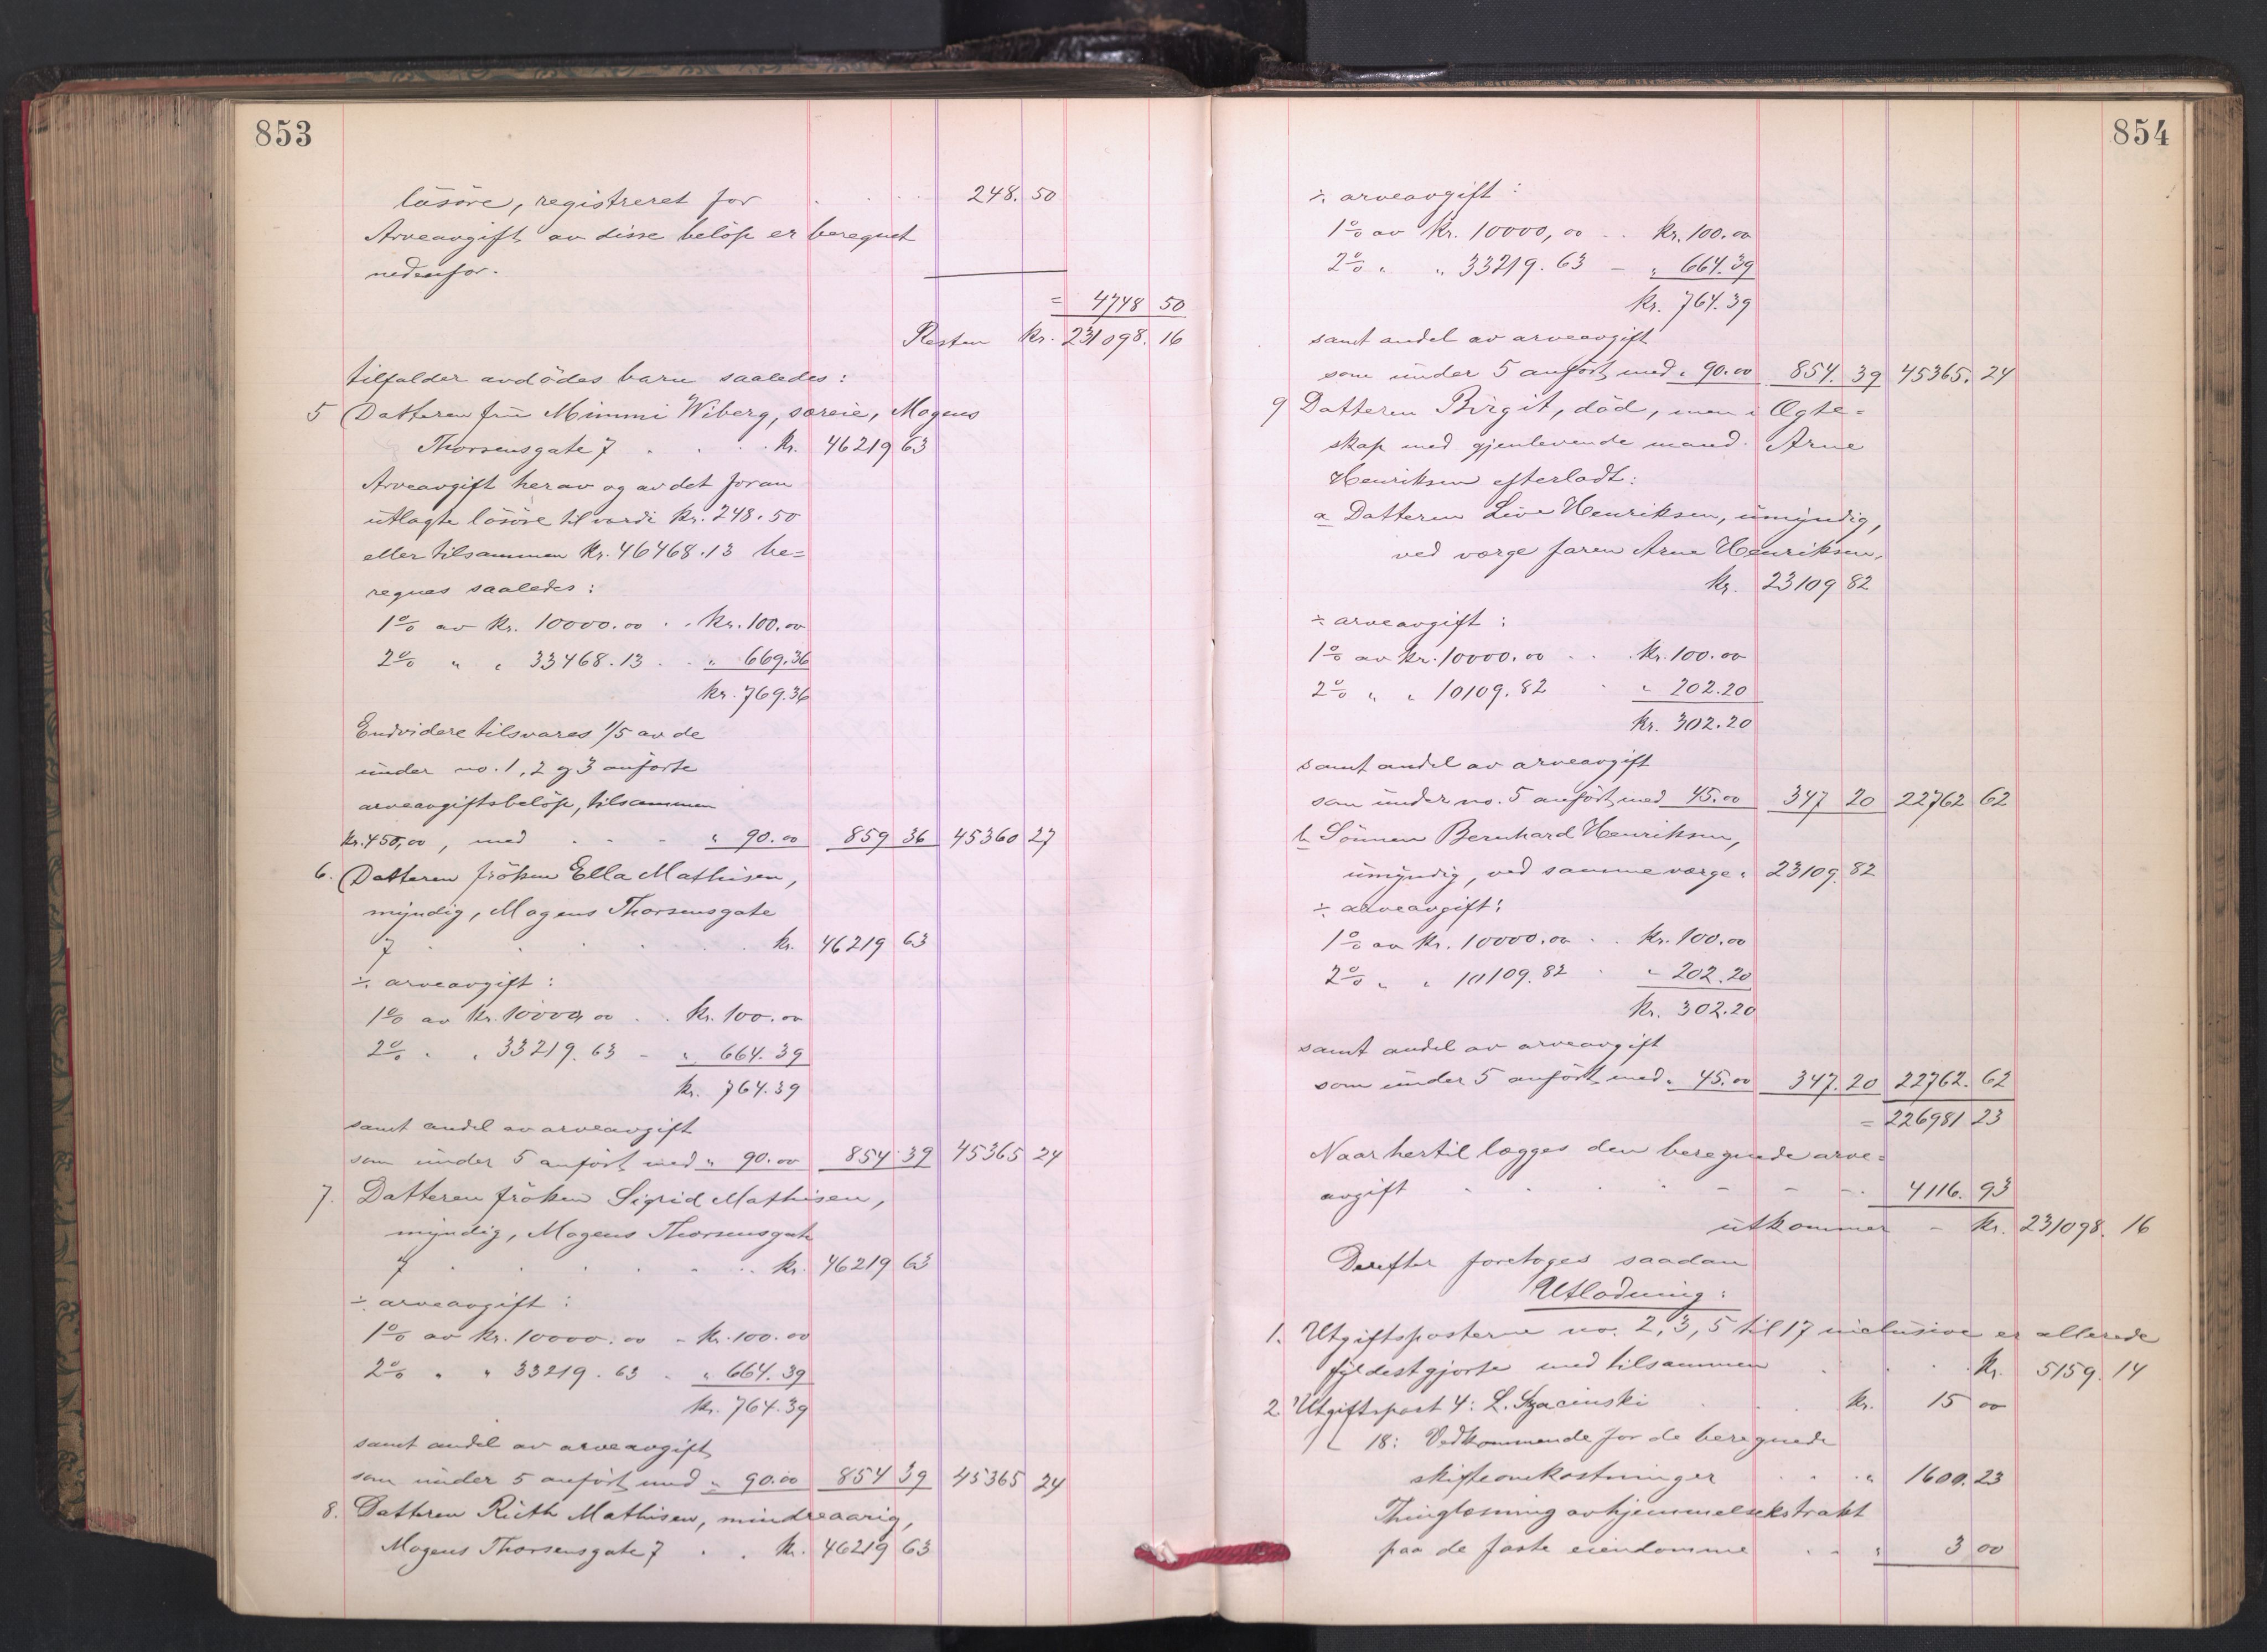 853
løsøre, registreret for . . . 248. 50
Arveavgift av disse beløp er beregnet
nedenfor.
= 4748 50
Resten kr. 231098. 16
tilfalder avdødes barn saaledes:
5 Datteren fru Mimmi Wiberg, særeie, Mogens
Thorsensgate 7 . . . kr. 46219 63
Arveavgift herav og av det foran
utlagte løsøre til værdi kr. 248.50
eller tilsammen kr. 46468.13 be=
regnes saaledes:
1% av kr. 10000.00 . . kr. 100.00
2% " " 33468.13 . . " 669.36
kr. 769.36
Endvidere tilsvares 1/5 av de
under no. 1, 2 og 3 anførte
arveavgiftsbeløp, tilsammen
kr. 450,00, med . . - " 90.00 859 36 45360 27
6. Datteren frøken Ella Mathisen,
myndig, Mogens Thorsensgate
7 . . . . . kr. 46219 63
÷ arveavgift:
1% av kr. 10000,00 . . kr. 100.00
2% " " 33219.63 - " 664.39
kr. 764.39
samt andel av arveavgift
som under 5 anført med " 90.00 854 39 45365 24
7. Datteren frøken Sigrid Mathisen,
myndig, Mogens Thorsensgate
7 . . . . . kr. 46219 63
÷ arveavgift:
1% av kr. 10000.00 - kr. 100.00
2% " " 33219.63 . " 664.39
kr. 764.39
samt andel av arveavgift
som under 5 anført med " 90.00 854 39 45365 24
8. Datteren Ruth Mathisen, mindreaarig,
Mogens Thorsensgate 7 . . kr. 46219 63
854
÷ arveavgift:
1% av kr. 10000,00 . . kr. 100.00
2% " " 33219.63 - " 664.39
kr. 764.39
samt andel av arveavgift
som under 5 anført med " 90.00 854. 39 45365. 24
9 Datteren Birgit, død, men i Ægte=
skap med gjenlevende mand Arne
Henriksen efterladt:
a Datteren Live Henriksen, umyndig,
ved værge faren Arne Henriksen,
kr. 23109 82
÷ arveavgift:
1% av kr. 10000.00 . . kr. 100.00
2% " " 10109.82 . " 202.20
kr. 302.20
samt andel av arveavgift
som under no. 5 anført med 45.00 347 20 22762 62
b Sønnen Bernhard Henriksen,
umyndig, ved samme værge " 23109. 82
÷ arveavgift:
1% av kr. 10000.00 . . kr. 100.00
2% " " 10109.82 . " 202.20
kr. 302.20
samt andel av arveavgift
som under 5 anført med " 45.00 347. 20 22762. 62
= 226981 23
Naar hertil lægges den beregnede arve=
avgift . . . . - - - . 4116. 93
utkommer - kr. 231098. 16
Derefter foretoges saadan
Utlodning:
1. Utgiftsposterne no. 2, 3, 5 til 17 inclusive er allerede
fyldestgjorte med tilsammen . . . kr. 5159. 14
2 Utgiftspost 4: L. Szacinski . . . kr. 15 00
" 18: Vedkommende for de beregnede
skifteomkostninger . . " 1600. 23
Thinglæsning av hjemmelsekstrakt
paa de faste eiendomme . . " 3 00